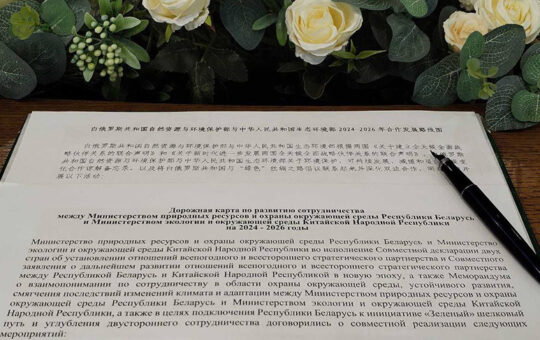 白俄罗斯共和国自然资源与环境保护部与中华人民共和国生态环境部 2024-2026 年合作发展路线图
白俄罗斯共和国自然资源与环境保护部与中华人民共和国生态环境部根据两国《关于建立全天候全面战
略伙伴关系的联合声明》和《关于新时代进一步发展两国全天候全面战略伙伴关系的联合声明》、
共和国自然资源与环境保护部与中华人民共和国生态环境部关于环境保护、可持续发展、减缓和
化合作谅解备忘录，以及将白俄罗斯共和国与“绿色”丝绸之路倡议联系起来并深化双边合作，
展以下活动：
Дорожная карта по развитию сотрудничества
между Министерством природных ресурсов и охраны окружающей среды Республики Беларусь
и Министерством экологии и окружающей среды Китайской Народной Республики
на 2024 - 2026 годы
Министерство природных ресурсов и охраны окружающей среды Республики Беларусь и Министерство
экологии и окружающей среды Китайской Народной Республики во исполнение Совместной декларации двух
стран об установлении отношений всепогодного и всестороннего стратегического партнерства и Совместного
заявления о дальнейшем развитии отношений всепогодного и всестороннего стратегического партнерства
между Республикой Беларусь и Китайской Народной Республикой в новую эпоху, а также Меморандума
о взаимопонимании по сотрудничеству в области охраны окружающей среды, устойчивого развития,
смягчения последствий изменений климата и адаптации между Министерством природных ресурсов и охраны
окружающей среды Республики Беларусь и Министерством экологии и окружающей среды Китайской
Народной Республики, а также в целях подключения Республики Беларусь к инициативе «Зеленый» шелковый
путь и углубления двустороннего сотрудничества договорились о совместной реализации следующих
мероприятий: